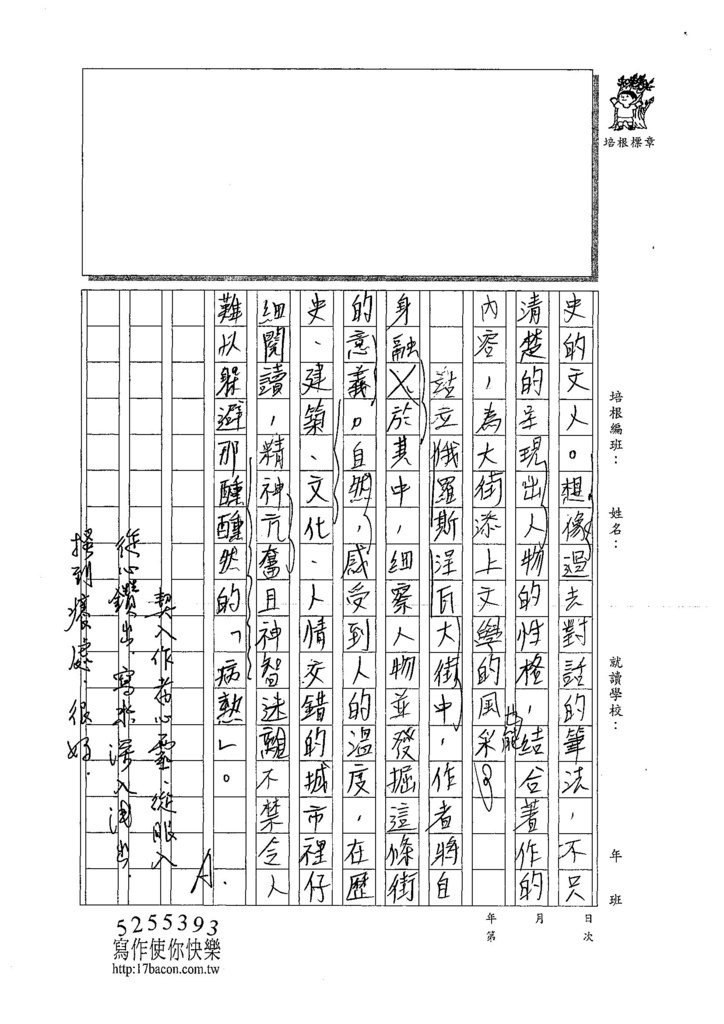 培根標章
培根編班：
姓名：
就讀學校：
年 班
年 月 日
第 次
史的文人。想像過去對話的筆法，不只
清楚的呈現出人物的性格，也能結合著作的
內容，為大街添上文學的風采。
站立俄羅斯涅瓦大街中，作者將自
身融入於其中，細察人物並發掘這條街
的意義。自然，感受到人的溫度，在歷
史、建築、文化、人情交錯的城市裡仔
細閱讀，精神亢奮且神智迷離不禁令人
難以躲避那醺醺然的「病熱」。
A.
契入作者心靈，從眼入
從心鑽出，寫來深入
搔到癢處，很好。
5255393
寫作使你快樂
http:17bacon.com.tw